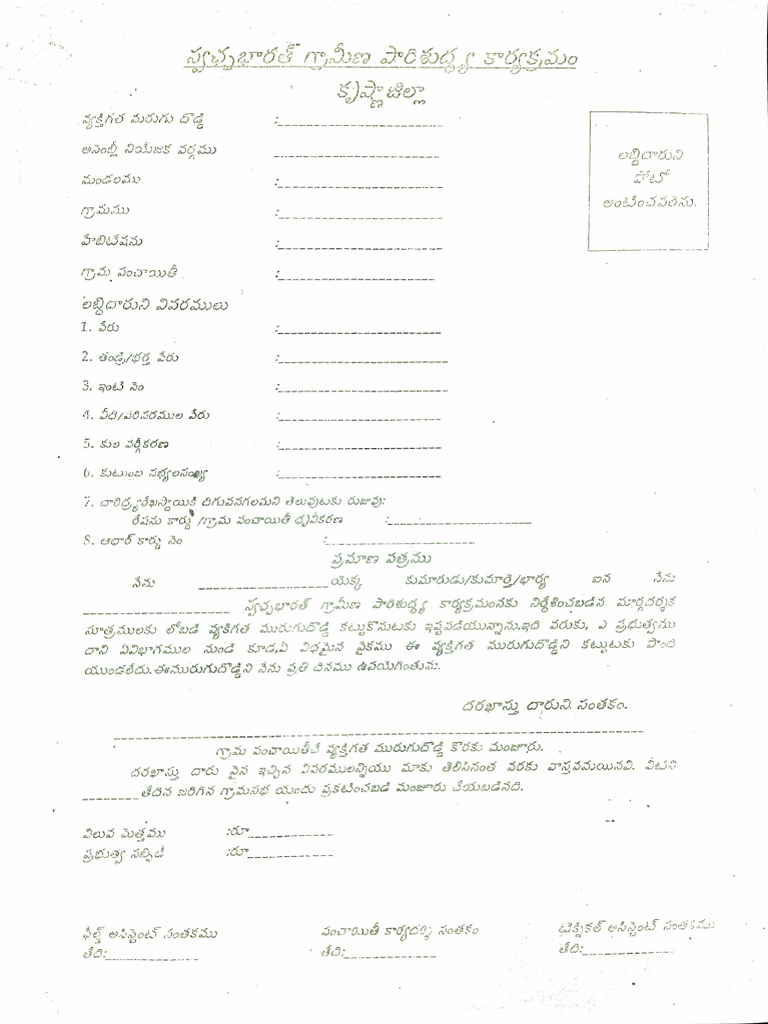 స్వచ్ఛభారత్ గ్రామీణ పారిశుద్ధ్య కార్యక్రమం
కృష్ణాజిల్లా
వ్యక్తిగత మరుగు దొడ్డి :
అసెంబ్లీ నియోజక వర్గము
మండలము :
గ్రామము :
హేబిటేషను :
గ్రామ పంచాయితీ :
లబ్దిదారుని పోటో అంటించవలెను.
లబ్దిదారుని వివరములు
1. పేరు :
2. తండ్రి/భర్త పేరు :
3. ఇంటి నెం :
4. వీధి/పరిసరముల పేరు :
5. కుల వర్గీకరణ :
6. కుటుంబ సభ్యులసంఖ్య :
7. దారిధ్ర్యరేఖస్థాయికి దిగువనగలమని తెలువుటకు రుజువు:
రేషను కార్డు /గ్రామ పంచాయితీ ధృవీకరణ :
8. ఆధార్ కార్డు నెం :
ప్రమాణ పత్రము
నేను యొక్క కుమారుడు/కుమార్తె/భార్య ఐన నేను
స్వచ్ఛభారత్ గ్రామీణ పారిశుద్ధ్య కార్యక్రమంనకు నిర్దేశించబడిన మార్గదర్శక
సూత్రములకు లోబడి వ్యక్తిగత మురుగుదొడ్డి కట్టుకొనుటకు ఇష్టపడియున్నాను.ఇది వరుకు, ఎ ప్రభుత్వము
దాని ఏవిభాగముల నుండి కూడ,ఏ విధమైన పైకము ఈ వ్యక్తిగత మురుగుదొడ్డిని కట్టుటకు పొంది
యుండలేదు.ఈమురుగుదొడ్డిని నేను ప్రతి దినము ఉపయోగింతును.
దరఖాస్తు దారుని సంతకం.
గ్రామ పంచాయితీచే వ్యక్తిగత మురుగుదొడ్డి కొరకు మంజూరు.
దరఖాస్తు దారు పైన ఇచ్చిన వివరములన్నియు మాకు తెలిసినంత వరకు వాస్తవమయినవి. వీటిని
తేదిన జరిగిన గ్రామసభ యందు ప్రకటించబడి మంజూరు చేయబడినది.
విలువ మొత్తము :రూ
ప్రభుత్వ సబ్సిడీ :రూ
ఫీల్డ్ అసిస్టెంట్ సంతకము పంచాయితీ కార్యదర్శి సంతకం టెక్నికల్ అసిస్టెంట్ సంతకము
తేది: తేది: తేది: